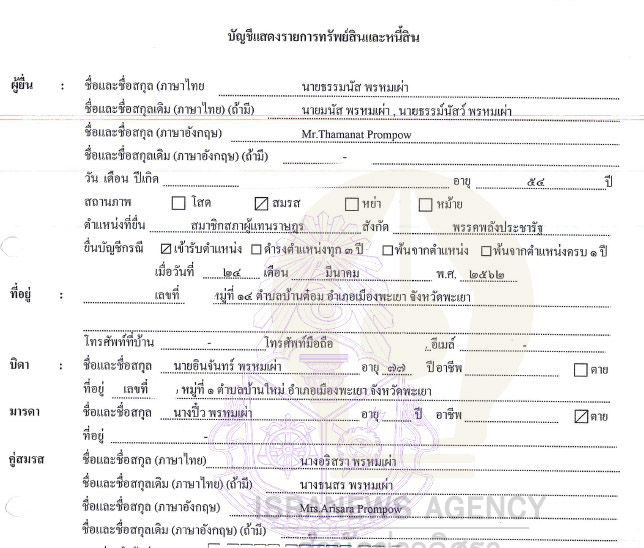 บัญชีแสดงรายการทรัพย์สินและหนี้สิน
ผู้ยื่น : ชื่อและชื่อสกุล (ภาษาไทย นายธรรมนัส พรหมเผ่า
ชื่อและชื่อสกุลเดิม (ภาษาไทย) (ถ้ามี) นายมนัส พรหมเผ่า , นายธรรม์นัสว์ พรหมเผ่า
ชื่อและชื่อสกุล (ภาษาอังกฤษ) Mr.Thamanat Prompow
ชื่อและชื่อสกุลเดิม (ภาษาอังกฤษ) (ถ้ามี) -
วัน เดือน ปีเกิด อายุ ๕๔ ปี
สถานภาพ โสด สมรส หย่า หม้าย
ตำแหน่งที่ยื่น สมาชิกสภาผู้แทนราษฎร สังกัด พรรคพลังประชารัฐ
ยื่นบัญชีกรณี เข้ารับตำแหน่ง ดำรงตำแหน่งทุก ๓ ปี พ้นจากตำแหน่ง พ้นจากตำแหน่งครบ ๑ ปี
เมื่อวันที่ ๒๔ เดือน มีนาคม พ.ศ. ๒๕๖๒
ที่อยู่ : เลขที่ หมู่ที่ ๑๔ ตำบลบ้านต๋อม อำเภอเมืองพะเยา จังหวัดพะเยา
โทรศัพท์ที่บ้าน - โทรศัพท์มือถือ , อีเมล์ -
บิดา : ชื่อและชื่อสกุล นายอินจันทร์ พรหมเผ่า อายุ ๗๗ ปี อาชีพ ตาย
ที่อยู่ เลขที่ , หมู่ที่ ๑ ตำบลบ้านใหม่ อำเภอเมืองพะเยา จังหวัดพะเยา
มารดา ชื่อและชื่อสกุล นางบิ๋ว พรหมเผ่า อายุ ปี อาชีพ ตาย
ที่อยู่ -
คู่สมรส ชื่อและชื่อสกุล (ภาษาไทย) นางอริสรา พรหมเผ่า
ชื่อและชื่อสกุลเดิม (ภาษาไทย) (ถ้ามี) นางธนสร พรหมเผ่า
ชื่อและชื่อสกุล (ภาษาอังกฤษ) Mrs.Arisara Prompow
ISRANEWS AGENCY
ชื่อและชื่อสกุลเดิม (ภาษาอังกฤษ) (ถ้ามี)